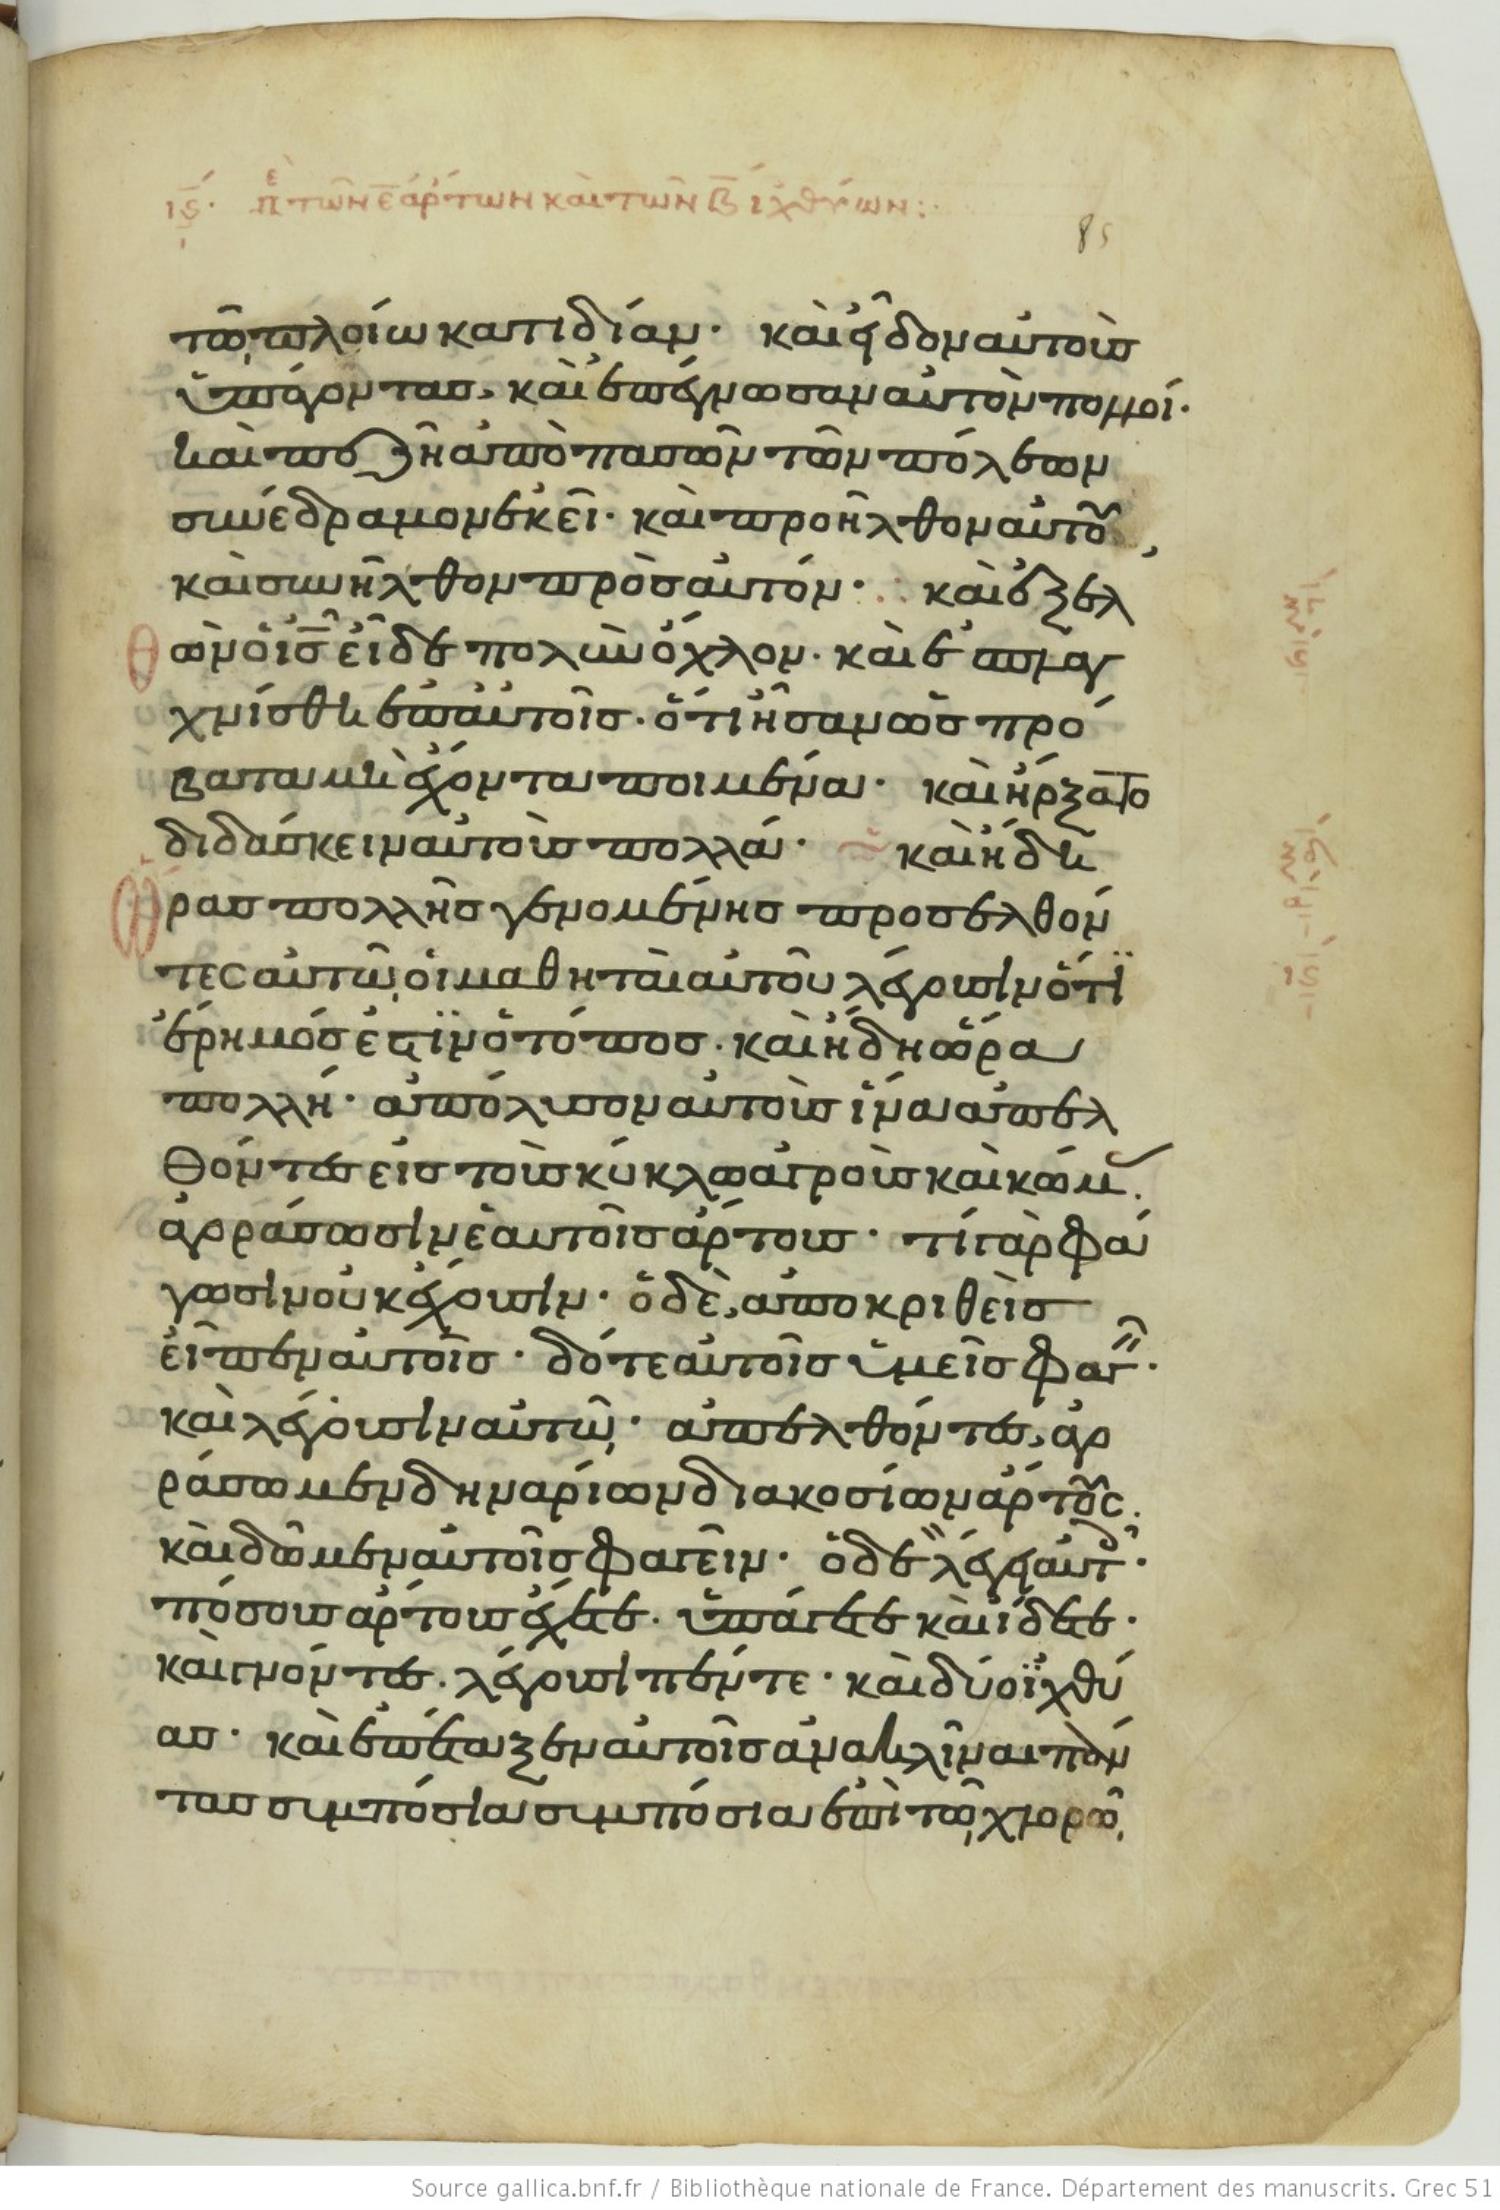 ις· πε τῶν ε ἄρτων καὶ τῶν β ἰχθύων:·
85
τῶ πλοίω κατιδίαν· καὶ εἶδον αὐτοὺσ
ὑπάγοντασ, καὶ ἐπέγνωσαν αὐτὸν πολλοί·
καὶ πεζῆ ἀπὸ πασῶν τῶν πόλεων
συνέδραμον ἐκεῖ· καὶ προῆλθον αὐτοὺ
καὶ συνῆλθον πρὸσ αὐτόν· καὶ ἐξελ
ὼν ὁ ισ εἶδε πολὺν ὄχλον· καὶ ἐσπλαγ
χνίσθη ἐπαὐτοῖσ· ὅτι ἦσαν ὡσ πρό
βατα μὴ ἔχοντα ποιμένα· καὶ ἤρξατο
διδάσκειν αὐτοὺσ πολλά· καὶ ἤδη
ρασ πολλῆσ γενομένησ προσελθόν
τες αὐτῶ οἱ μαθηταὶ αὐτοῦ λέγουσιν ὅτι
ἔρημόσ ἐστϊν ὁ τόποσ· καὶ ἤδη ὥρα
πολλή· ἀπόλυσον αὐτοὺσ ἵνα ἀπελ
θόντεσ εἰσ τοὺσ κύκλω ἀγροὺσ καὶ κώμ·
ἀγοράσωσιν ἑαυτοῖσ ἄρτουσ· τί γὰρ φά
γωσιν οὐκ ἔχουσιν· ὁ δὲ, ἀποκριθεὶσ
εἶπεν αὐτοῖσ· δότε αὐτοῖσ ὑμεῖσ φαγ·
καὶ λέγουσιν αὐτῶ· ἀπελθόντεσ, ἀγο
ράσωμεν δηναρίων διακοσίων ἄρτους·
καὶ δῶμεν αὐτοῖσ φαγεῖν· ὁ δὲ λέγει αὐτ·
πόσουσ ἄρτουσ ἔχετε· ὑπάγετε καὶ ἴδετε·
καὶ γνόντεσ· λέγουσι πέντε· καὶ δύο ϊχθύ
ασ· καὶ ἐπέταξεν αὐτοῖσ ἀνακλῖναι πάν
τασ συμπόσια συμπόσια ἐπὶ τῶ χλορῶ
Source gallica.bnf.fr / Bibliothèque nationale de France. Département des manuscrits. Grec 51